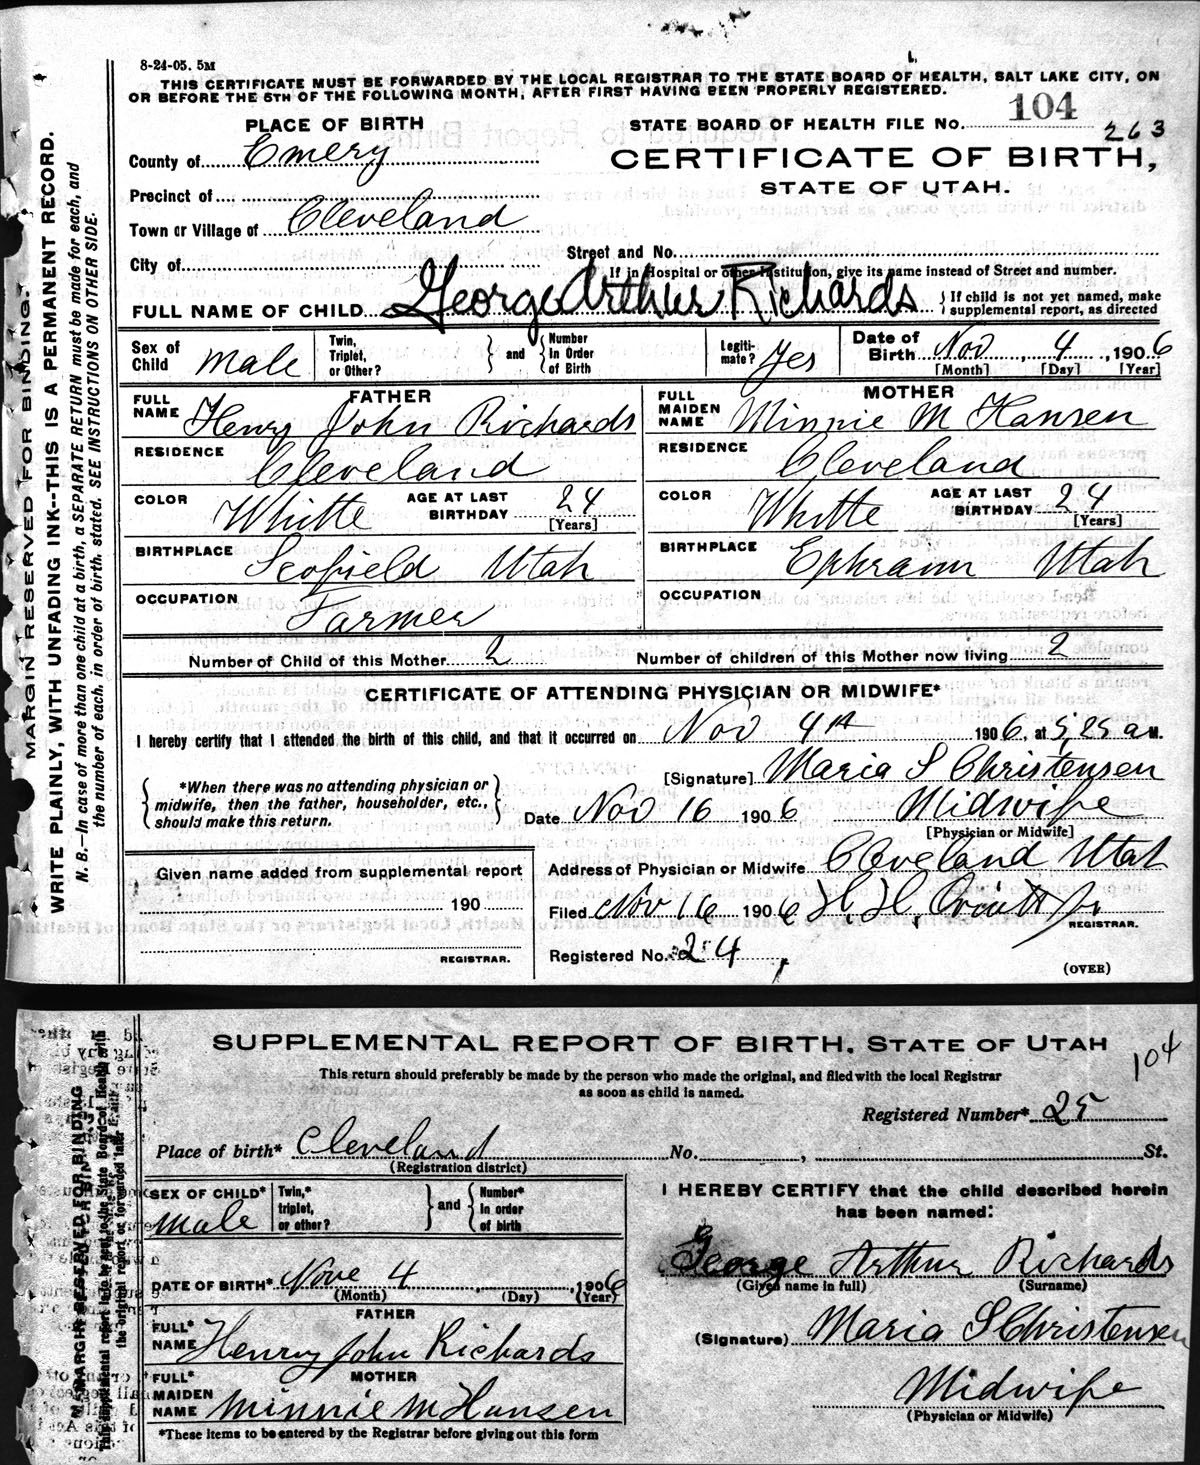 8-24-05. 5M
THIS CERTIFICATE MUST BE FORWARDED BY THE LOCAL REGISTRAR TO THE STATE BOARD OF HEALTH, SALT LAKE CITY, ON
OR BEFORE THE 5TH OF THE FOLLOWING MONTH, AFTER FIRST HAVING BEEN PROPERLY REGISTERED.
PLACE OF BIRTH
STATE BOARD OF HEALTH FILE No. 104
263
County of Emery
CERTIFICATE OF BIRTH,
STATE OF UTAH.
Precinct of
Town or Village of Cleveland
Street and No.
City of
If in Hospital or other Institution, give its name instead of Street and number.
FULL NAME OF CHILD George Arthur Richards } If child is not yet named, make supplemental report, as directed
Sex of Child Male Twin, Triplet, or Other? } and { Number In Order of Birth Legiti- mate? Yes Date of Birth Nov 4, 1906
[Month] [Day] [Year]
FATHER
FULL NAME Henry John Richards
RESIDENCE Cleveland
COLOR Whitte AGE AT LAST BIRTHDAY 24
[Years]
BIRTHPLACE Scofield Utah
OCCUPATION Farmer
MOTHER
FULL MAIDEN NAME Minnie M Hansen
RESIDENCE Cleveland
COLOR Whitte AGE AT LAST BIRTHDAY 24
[Years]
BIRTHPLACE Ephraim Utah
OCCUPATION
Number of Child of this Mother 2 Number of children of this Mother now living 2
CERTIFICATE OF ATTENDING PHYSICIAN OR MIDWIFE*
I hereby certify that I attended the birth of this child, and that it occurred on Nov 4th 1906, at 5,25 a M.
{ *When there was no attending physician or
midwife, then the father, householder, etc.,
should make this return. }
[Signature] Maria S Christensen
Date Nov 16 1906 Midwife
[Physician or Midwife]
Given name added from supplemental report
190
REGISTRAR.
Address of Physician or Midwife Cleveland Utah
Filed Nov 16 1906 H. H.
REGISTRAR.
Registered No. 24
(OVER)
MARGIN RESERVED FOR BINDING.
WRITE PLAINLY, WITH UNFADING INK--THIS IS A PERMANENT RECORD.
N. B.—In case of more than one child at a birth, a SEPARATE RETURN must be made for each, and
the number of each, in order of birth, stated. SEE INSTRUCTIONS ON OTHER SIDE.
SUPPLEMENTAL REPORT OF BIRTH, STATE OF UTAH
104
This return should preferably be made by the person who made the original, and filed with the local Registrar
as soon as child is named.
Registered Number* 25
Place of birth* Cleveland No. , St.
(Registration district)
SEX OF CHILD* Male Twin,* triplet, or other? } and { Number* in order of birth
DATE OF BIRTH* Nove 4, 1906
(Month) (Day) (Year)
FATHER
FULL* NAME Henry John Richards
MOTHER
FULL* MAIDEN NAME Minnie M Hansen
*These items to be entered by the Registrar before giving out this form
I HEREBY CERTIFY that the child described herein
has been named:
George Arthur Richards
(Given name in full) (Surname)
(Signature) Maria S Christensen
Midwife
(Physician or Midwife)
MARGIN RESERVED FOR BINDING